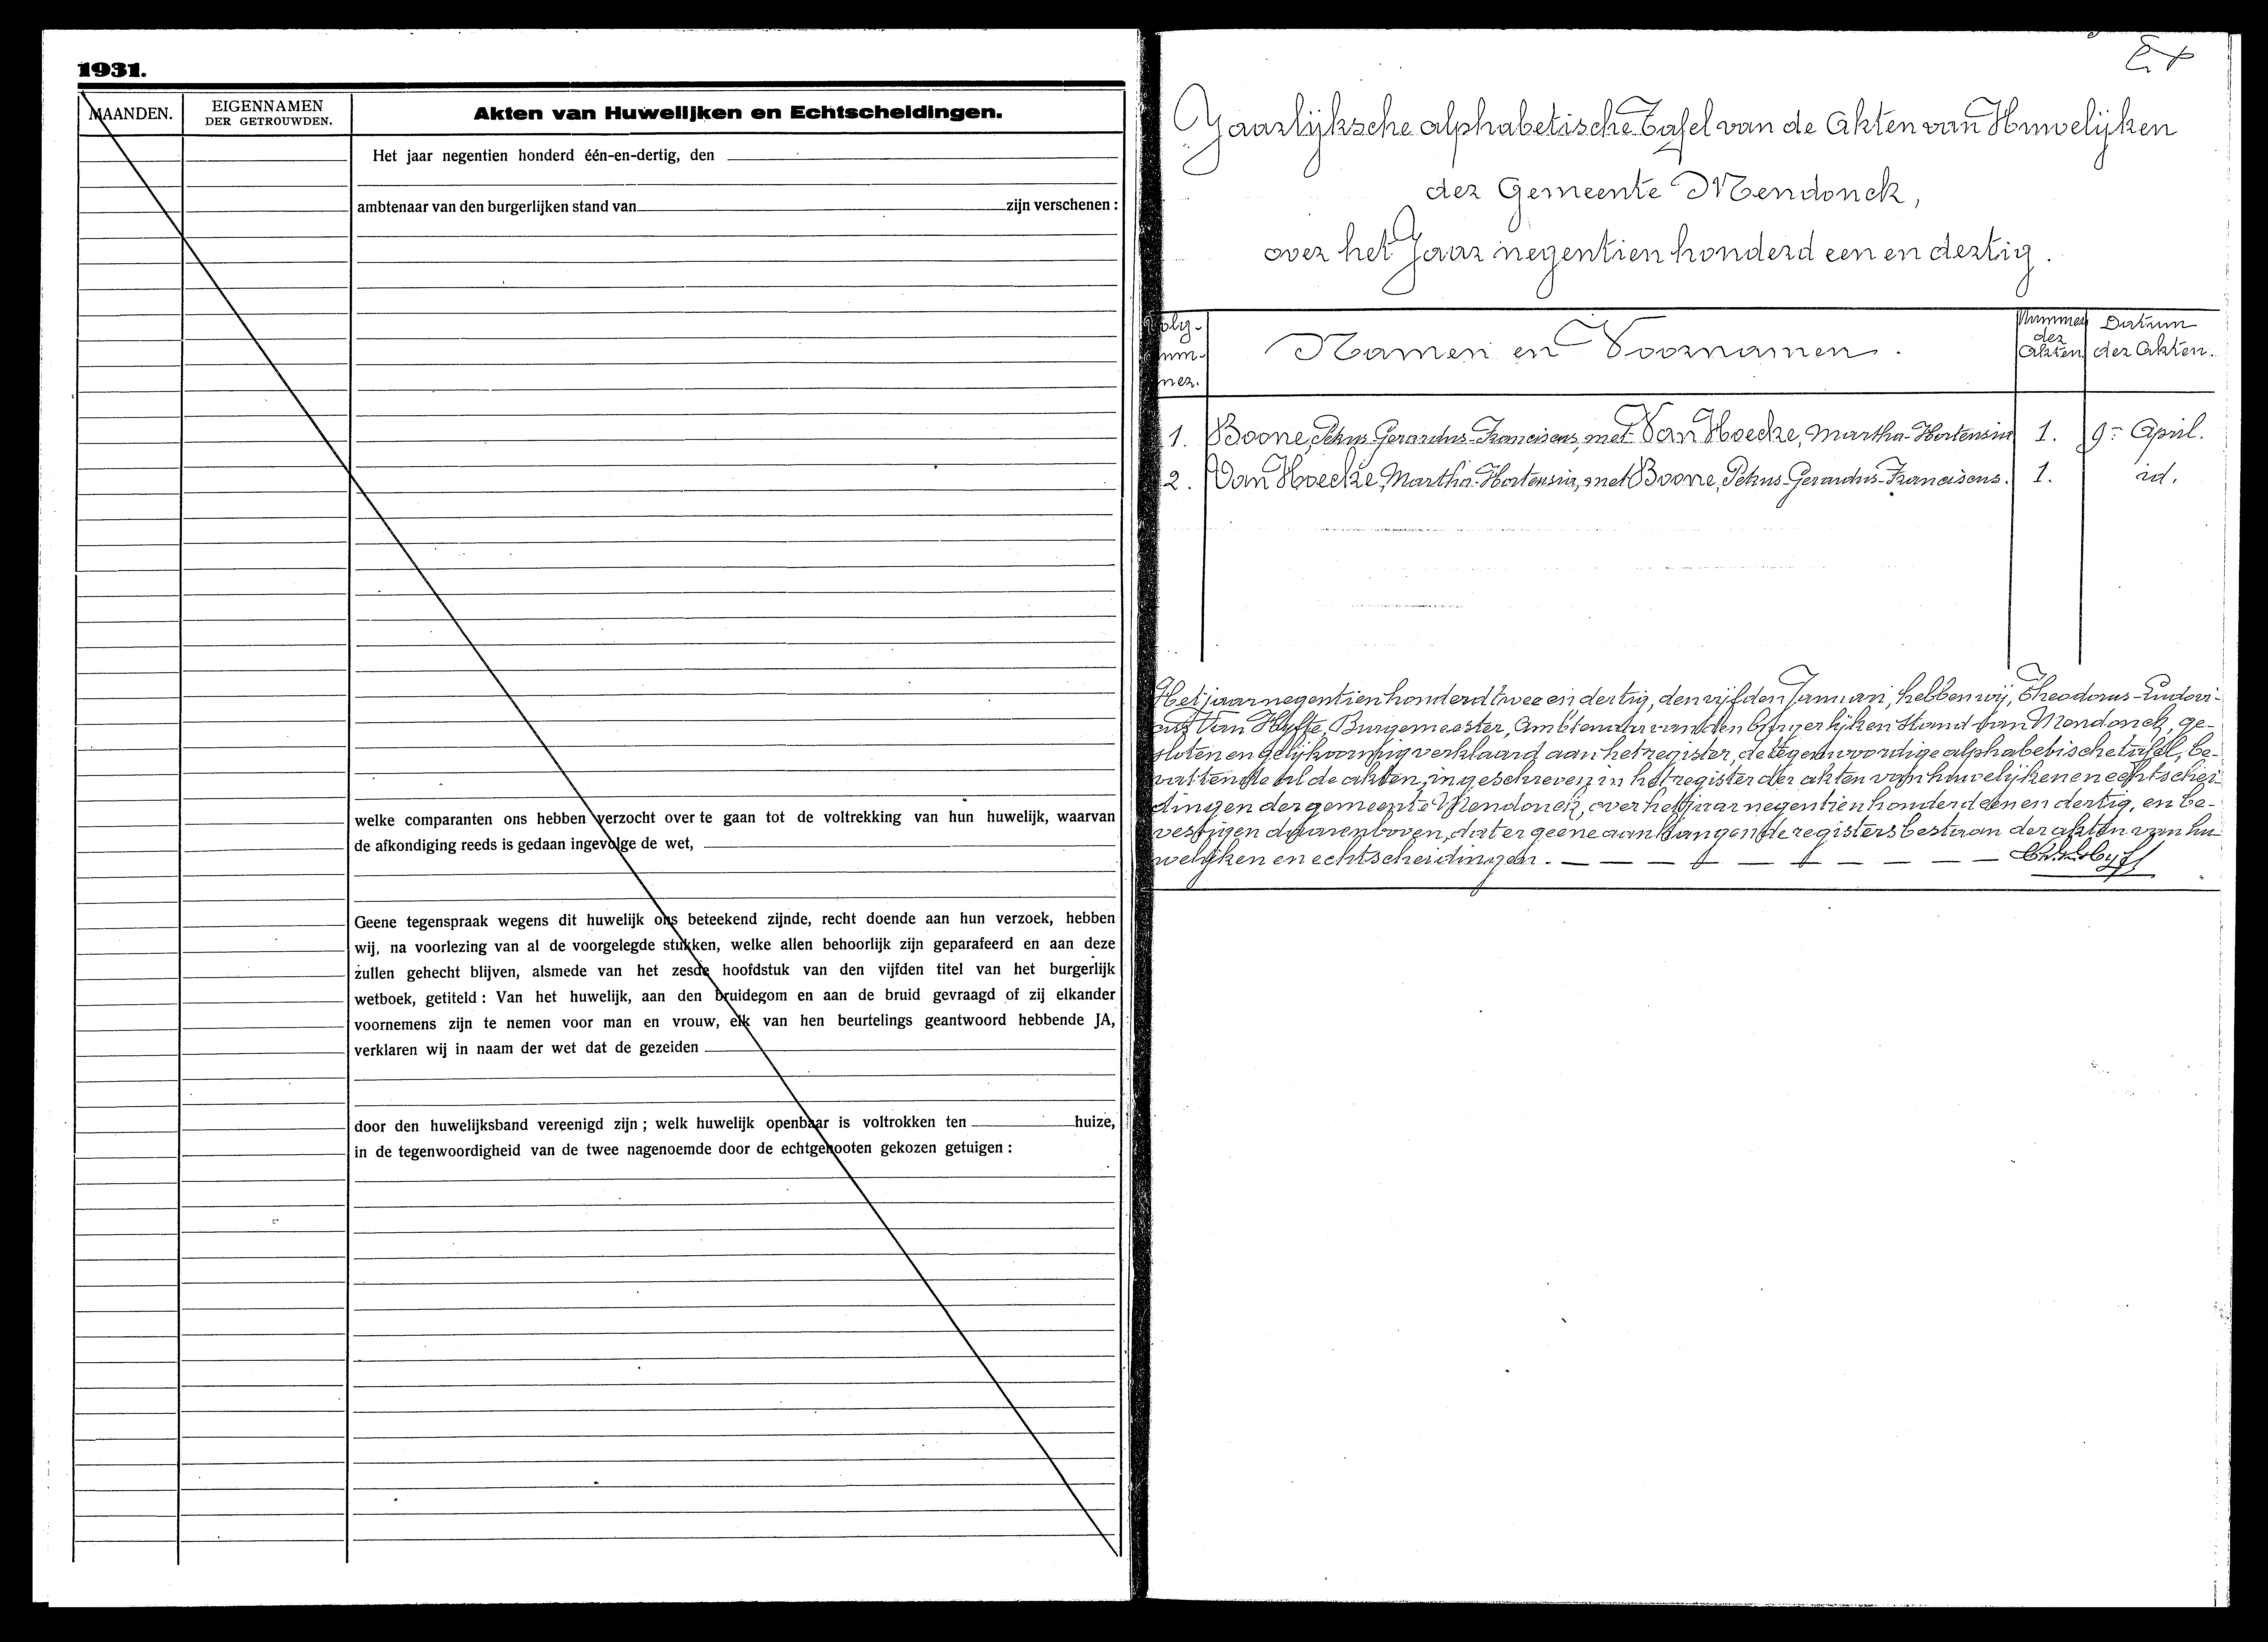 1931.
MAANDEN.
EIGENNAMEN
DER GETROUWDEN.
Akten van Huwelijken en Echtscheidingen.
Het jaar negentien honderd één-en-dertig, den
ambtenaar van den burgerlijken stand van zijn verschenen :
welke comparanten ons hebben verzocht over te gaan tot de voltrekking van hun huwelijk, waarvan
de afkondiging reeds is gedaan ingevolge de wet,
Geene tegenspraak wegens dit huwelijk ons beteekend zijnde, recht doende aan hun verzoek, hebben
wij, na voorlezing van al de voorgelegde stukken, welke allen behoorlijk zijn geparafeerd en aan deze
zullen gehecht blijven, alsmede van het zesde hoofdstuk van den vijfden titel van het burgerlijk
wetboek, getiteld : Van het huwelijk, aan den bruidegom en aan de bruid gevraagd of zij elkander
voornemens zijn te nemen voor man en vrouw, elk van hen beurtelings geantwoord hebbende JA,
verklaren wij in naam der wet dat de gezeiden
door den huwelijksband vereenigd zijn ; welk huwelijk openbaar is voltrokken ten huize,
in de tegenwoordigheid van de twee nagenoemde door de echtgenooten gekozen getuigen :
Jaarlijksche alphabetische Tafel van de Akten van Huwelijken
der Gemeente Mendonck,
over het Jaar negentien honderd een en dertig.
Volg-
num-
mer.
Namen en Voornamen.
Nummer
der
Akten
Datum
der Akten.
1. Boone, Petrus-Gerardus-Franciscus, met Van Hoecke, Martha-Hortensia 1. 9n April.
2. Van Hoecke, Martha-Hortensia, met Boone, Petrus-Gerardus-Franciscus. 1. id.
Het jaar negentien honderd twee en dertig, den vijfden Januari, hebben wij, Theodorus-Ludovi-
cus Van Hyfte, Burgemeester, Ambtenaar van den burgerlijken Stand van Mendonck, ge-
sloten en gelijkvormig verklaard aan het register, de tegenwoordige alphabetische tafel, be-
vattende al de akten, ingeschreven in het register der akten van huwelijken en echtschei-
dingen der gemeente Mendonck, over het jaar negentien honderd een en dertig, en be-
vestigen daarenboven, dat er geene aanhangende registers bestaan der akten van hu-
welijken en echtscheidingen.